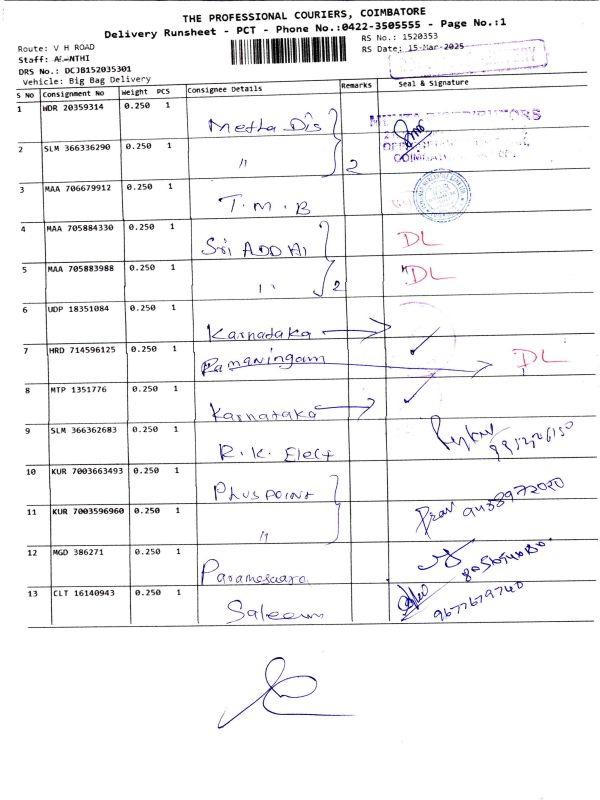 THE PROFESSIONAL COURIERS, COIMBATORE
Delivery Runsheet - PCT - Phone No.:0422-3505555 - Page No.:1
Route: V H ROAD
RS No.: 1520353
Staff: NTHI
RS Date: 15-Mar-2025
DRS No.: DCJB152035301
Vehicle: Big Bag Delivery
S NO Consignment No Weight PCS Consignee Details Remarks Seal & Signature
1 WDR 20359314 0.250 1 Metha Dis
2 SLM 366336290 0.250 1 " 2
COIMBA
3 MAA 706679912 0.250 1 T.M.B
4 MAA 705884330 0.250 1 Sri ADD AI DL
5 MAA 705883988 0.250 1 " 2 DL
6 UDP 18351084 0.250 1 Karnataka
7 HRD 714596125 0.250 1 Ramaningam DL
8 MTP 1351776 0.250 1 Karnataka
9 SLM 366362683 0.250 1 R.K. Elect
10 KUR 7003663493 0.250 1 Pluspoint
11 KUR 7003596960 0.250 1 " 9438972020
12 MGD 386271 0.250 1 Paramesaara
13 CLT 16140943 0.250 1 Saleem 9677679740